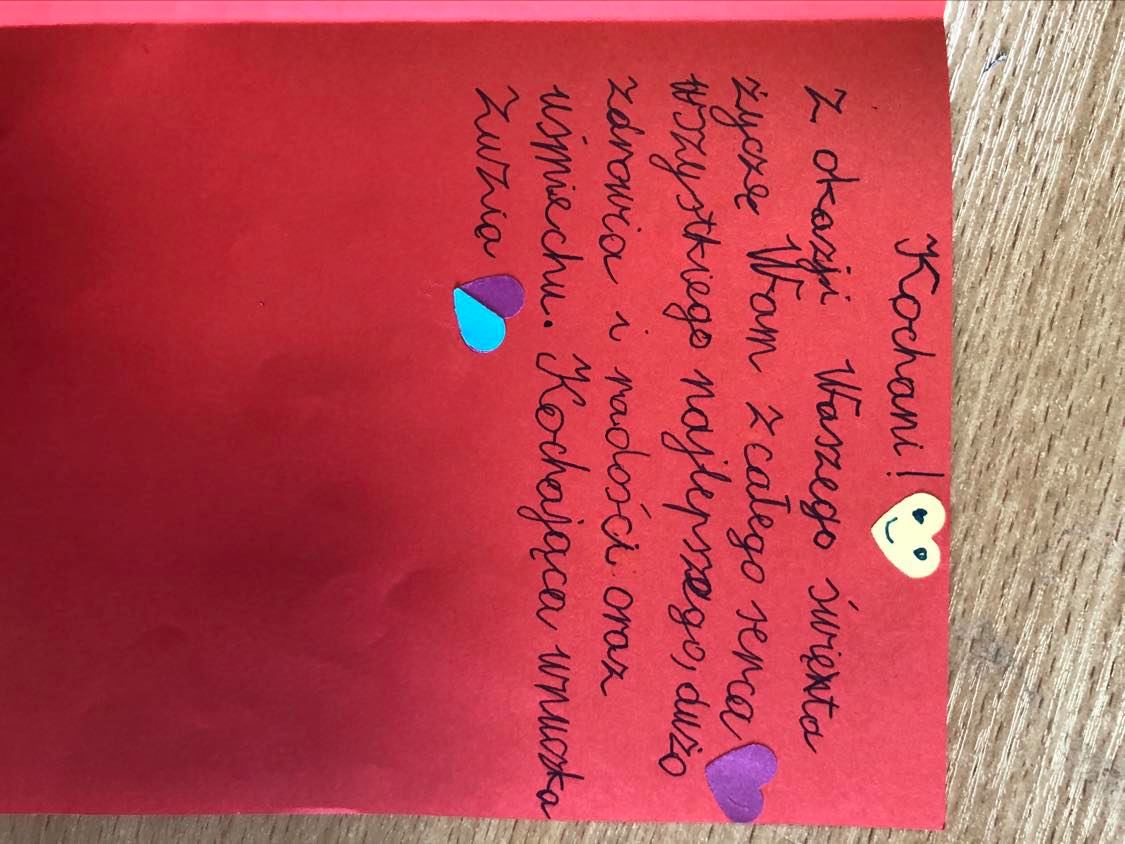 Kochani!
Z okazji Waszego święta
życzę Wam z całego serca
wszystkiego najlepszego, dużo
zdrowia i radości oraz
uśmiechu. Kochająca wnuczka
Zuzia